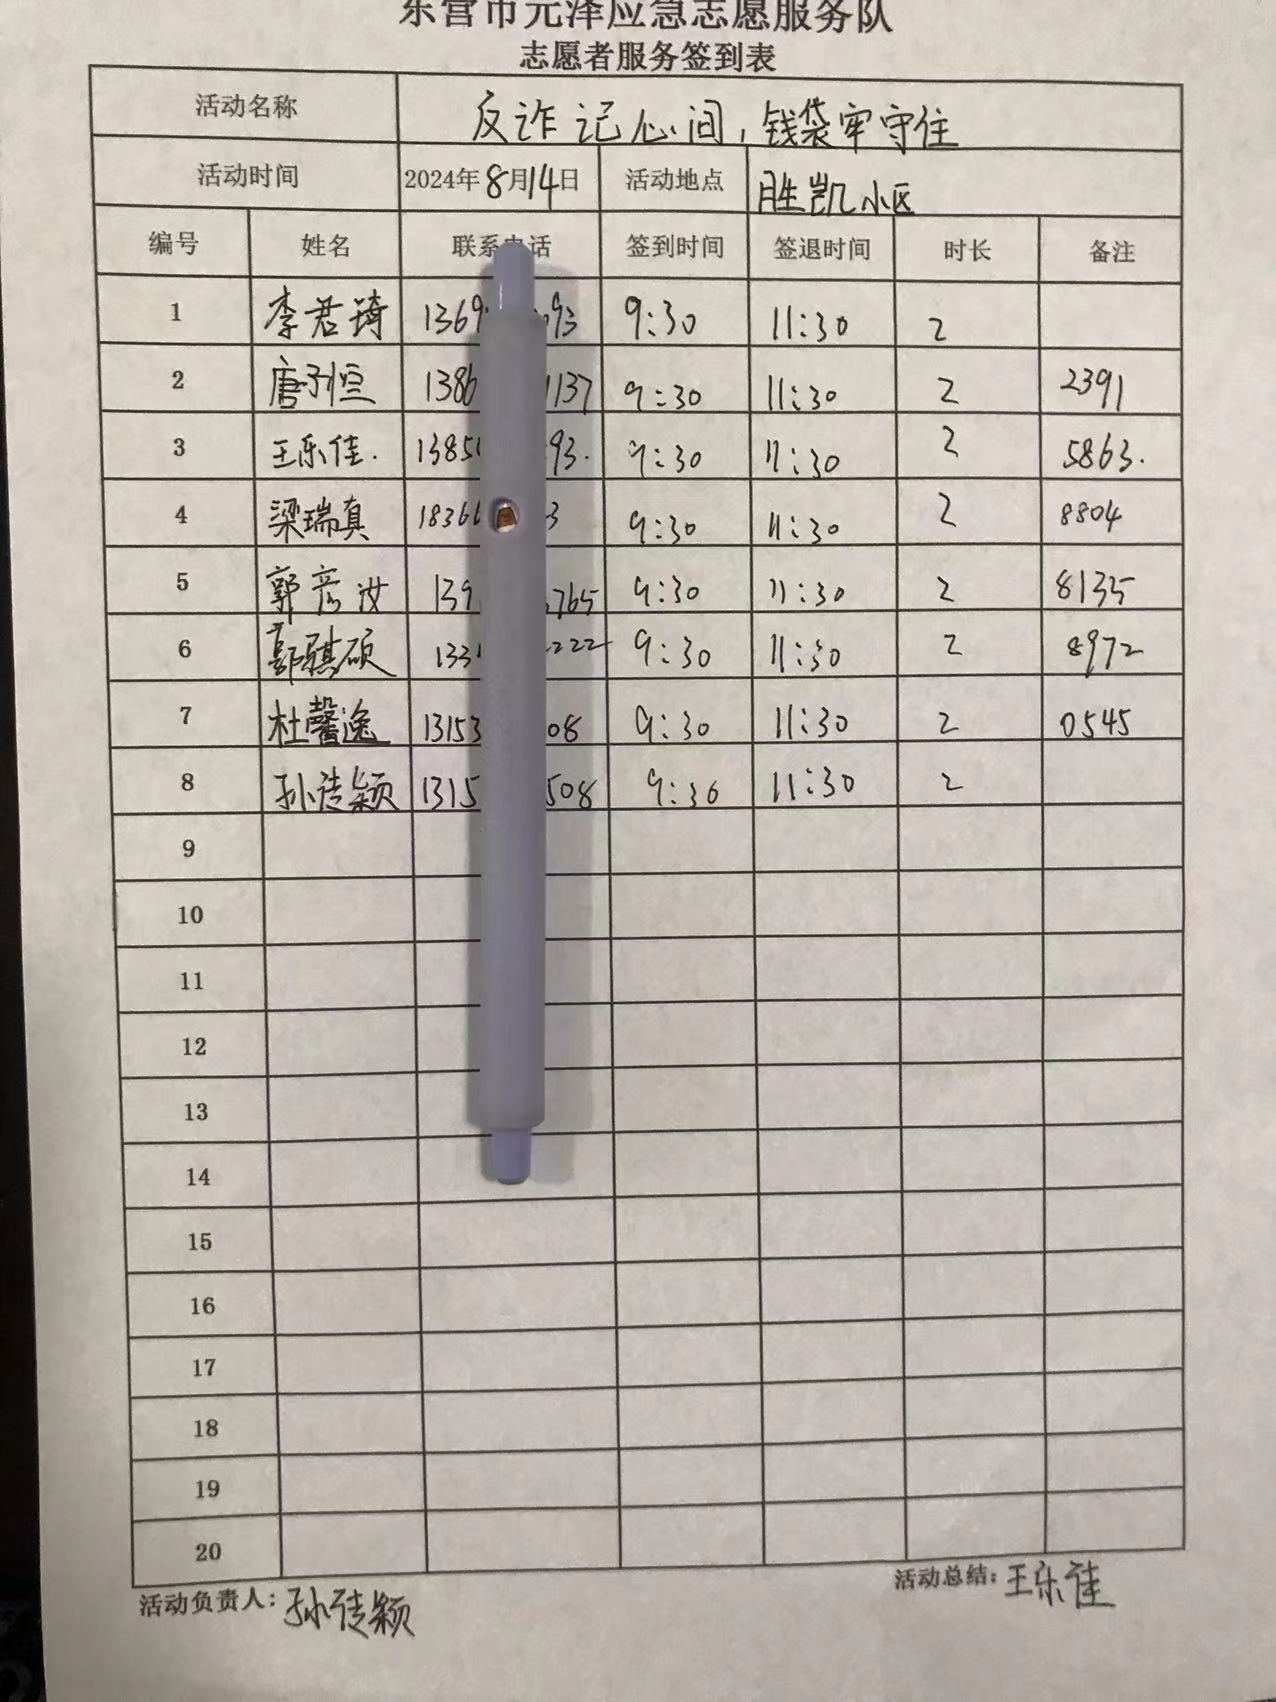 东营市元泽应急志愿服务队
志愿者服务签到表
活动名称 反诈记心间,钱袋牢守住
活动时间 2024年8月14日 活动地点 胜凯小区
编号 姓名 联系电话 签到时间 签退时间 时长 备注
1 李君琦 1369 93 9:30 11:30 2
2 唐子恒 1386 1137 9:30 11:30 2 2391
3 王乐佳. 1385 93. 9:30 11:30 2 5863.
4 梁瑞真 1836 3 9:30 11:30 2 8804
5 郭彦汝 139 765 9:30 11:30 2 8135
6 郭骐硕 133 222 9:30 11:30 2 8972
7 杜馨逸 13153 08 9:30 11:30 2 0545
8 孙诗颖 1315 508 9:30 11:30 2
9
10
11
12
13
14
15
16
17
18
19
20
活动负责人: 孙诗颖 活动总结: 王乐佳